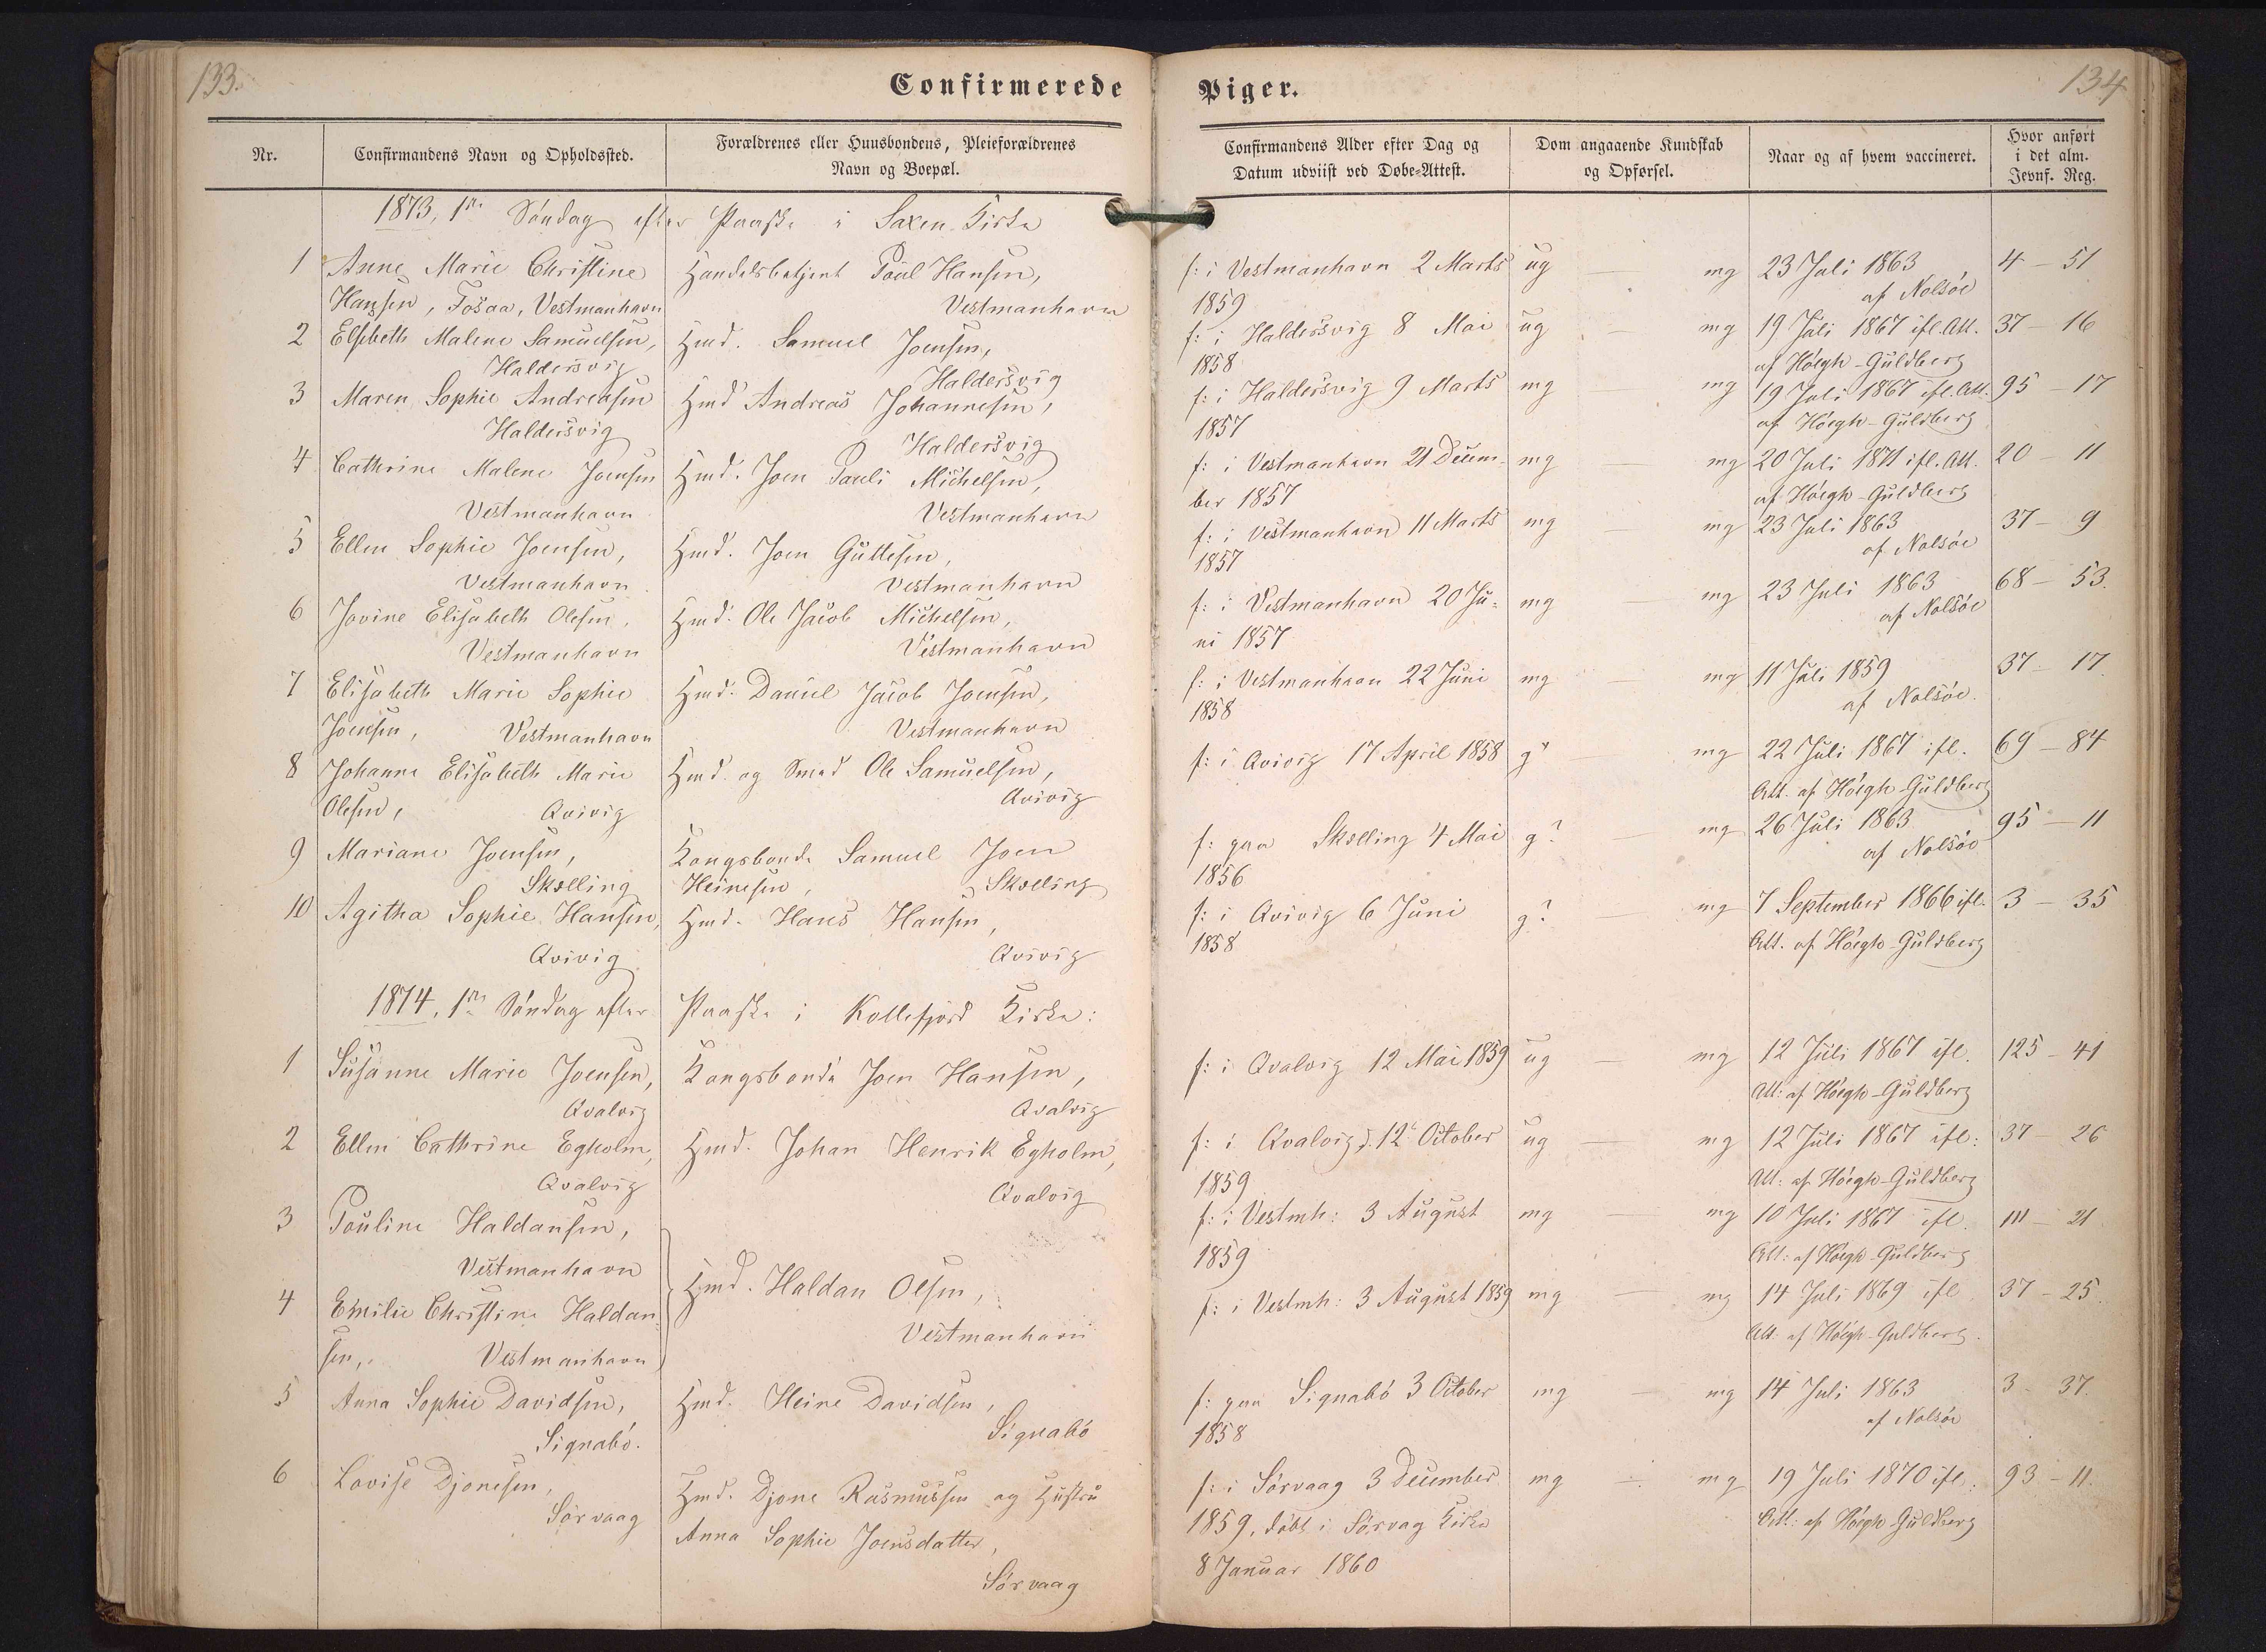 133.
134
Confirmerede Piger.
Nr.
Confirmandens Navn og Opholdssted.
Forældrenes eller Huusbondens, Pleieforældrenes
Navn og Boepæl.
Confirmandens Alder efter Dag og
Datum udviist ved Døbe-Attest.
Dom angaaende Kundskab
og Opførsel.
Naar og af hvem vaccineret.
Hvor anført
i det alm.
Jevnf. Reg.
1873, 1ste Søndag efter Paaske i Saxen Kirke
1 Anne Marie Christine
Hansen, Fosaa, Vestmanhavn
Handelsbetjent Poul Hansen,
Vestmanhavn
f: i Vestmanhavn 2 Marts
1859
ug — mg
23 Juli 1863
af Nolsöe
4 - 51
2 Elsebeth Malene Samuelsen,
Haldersvig
Hmd. Samuel Joensen,
Haldersvig
f: i Haldersvig 8 Mai
1858
ug — mg
19 Juli 1867 ifl. Att.
af Höegh-Guldberg
37 - 16
3 Maren Sophie Andreasen
Haldersvig
Hmd Andreas Johannesen,
Haldersvig
f: i Haldersvig 9 Marts
1857
mg mg
19 Juli 1867 ifl. Att.
af Höegh-Guldberg
95 - 17
4 Cathrine Malene Joensen
Vestmanhavn
Hmd. Joen Pauli Michelsen,
Vestmanhavn
f: i Vestmanhavn 21 Decem-
ber 1857
mg — mg
20 Juli 1871 ifl. Att.
af Höegh-Guldberg
20 - 11
5 Ellen Sophie Joensen,
Vestmanhavn
Hmd. Joen Guttesen,
Vestmanhavn
f: i Vestmanhavn 11 Marts
1857
mg — mg
23 Juli 1863
af Nolsöe
37 - 9
6 Jovine Elisabeth Olesen,
Vestmanhavn
Hmd. Ole Jacob Michelsen,
Vestmanhavn
f: i Vestmanhavn 20 Ju-
ni 1857
mg — mg
23 Juli 1863
af Nolsöe
68 - 53.
7 Elisabeth Marie Sophie
Joensen, Vestmanhavn
Hmd. Daniel Jacob Joensen,
Vestmanhavn
f: i Vestmanhavn 22 Juni
1858
mg — mg
11 Juli 1859
af Nolsöe.
37 - 17.
8 Johanne Elisabeth Marie
Olesen, Qvivig
Hmd. og Smed Ole Samuelsen,
Qvivig
f: i Qvivig 17 April 1858
g+ — mg
22 Juli 1867 ifl.
Att. af Höegh-Guldberg
69 - 84
9 Mariane Joensen,
Skælling
Kongsbonde Samuel Joen
Heinesen, Skælling
f: paa Skælling 4 Mai
1856
g? — mg
26 Juli 1863
af Nolsöe
95 - 11
10 Agitha Sophie Hansen,
Qvivig
Hmd. Hans Hansen,
Qvivig
f: i Qvivig 6 Juni
1858
g? — mg
7 September 1866 ifl.
Att. af Höegh-Guldberg
3 - 35
1874, 1ste Søndag efter Paaske i Kollefjord Kirke:
1 Susanne Marie Joensen,
Qvalvig
Kongsbonde Joen Hansen,
Qvalvig
f: i Qvalvig 12 Mai 1859
ug — mg
12 Juli 1867 ifl.
Att: af Höegh-Guldberg
125 - 41
2 Ellen Cathrine Egholm,
Qvalvig
Hmd. Johan Henrik Egholm,
Qvalvig
f: i Qvalvig d. 12te October
1859
ug — mg
12 Juli 1867 ifl:
Att: af Höegh-Guldberg
37 - 26
3 Pouline Haldansen,
Vestmanhavn
f: i Vestmh: 3 August
1859
mg — mg
10 Juli 1867 ifl.
Att: af Höegh-Guldberg
111 - 21
4 Emilie Christine Haldan-
sen, Vestmanhavn
Hmd. Haldan Olsen,
Vestmanhavn
f: i Vestmh: 3 August 1859
mg — mg
14 Juli 1869 ifl
Att. af Höegh-Guldberg.
37 - 25.
5 Anna Sophie Davidsen,
Signabö.
Hmd. Heine Davidsen,
Signabö
f: paa Signabö 3 October
1858
mg — mg
14 Juli 1863
af Nolsöe
3 - 37.
6 Lovise Djonesen,
Sörvaag
Hmd. Djone Rasmussen og Hustru
Anna Sophie Joensdatter,
Sörvaag
f: i Sörvaag 3 December
1859, döbt i Sörvag Kirke
8 Januar 1860
mg mg
19 Juli 1870 ifl:
Att: af Höegh Guldberg
93 - 11.